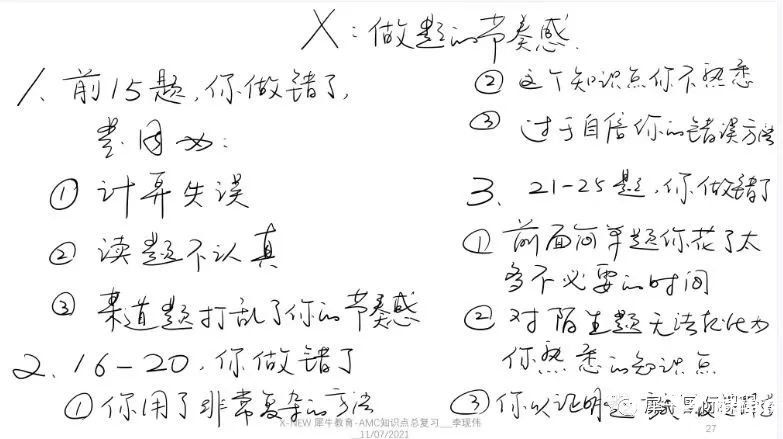 X:做题的节奏感.
1、前15题,你做错了,
是因为:
① 计算失误
② 读题不认真
③ 某道题打乱了你的节奏感
2、16-20,你做错了
① 你用了非常复杂的方法
② 这个知识点你不熟悉
③ 过于自信你的错误方法
3、21-25题,你做错了
① 前面简单题你花了太
多不必要的时间
② 对陌生题无法转化为
你熟悉的知识点
③ 你以证明题
X-NEW 犀牛教育-AMC知识点总复习__李现伟
__11/07/2021
27